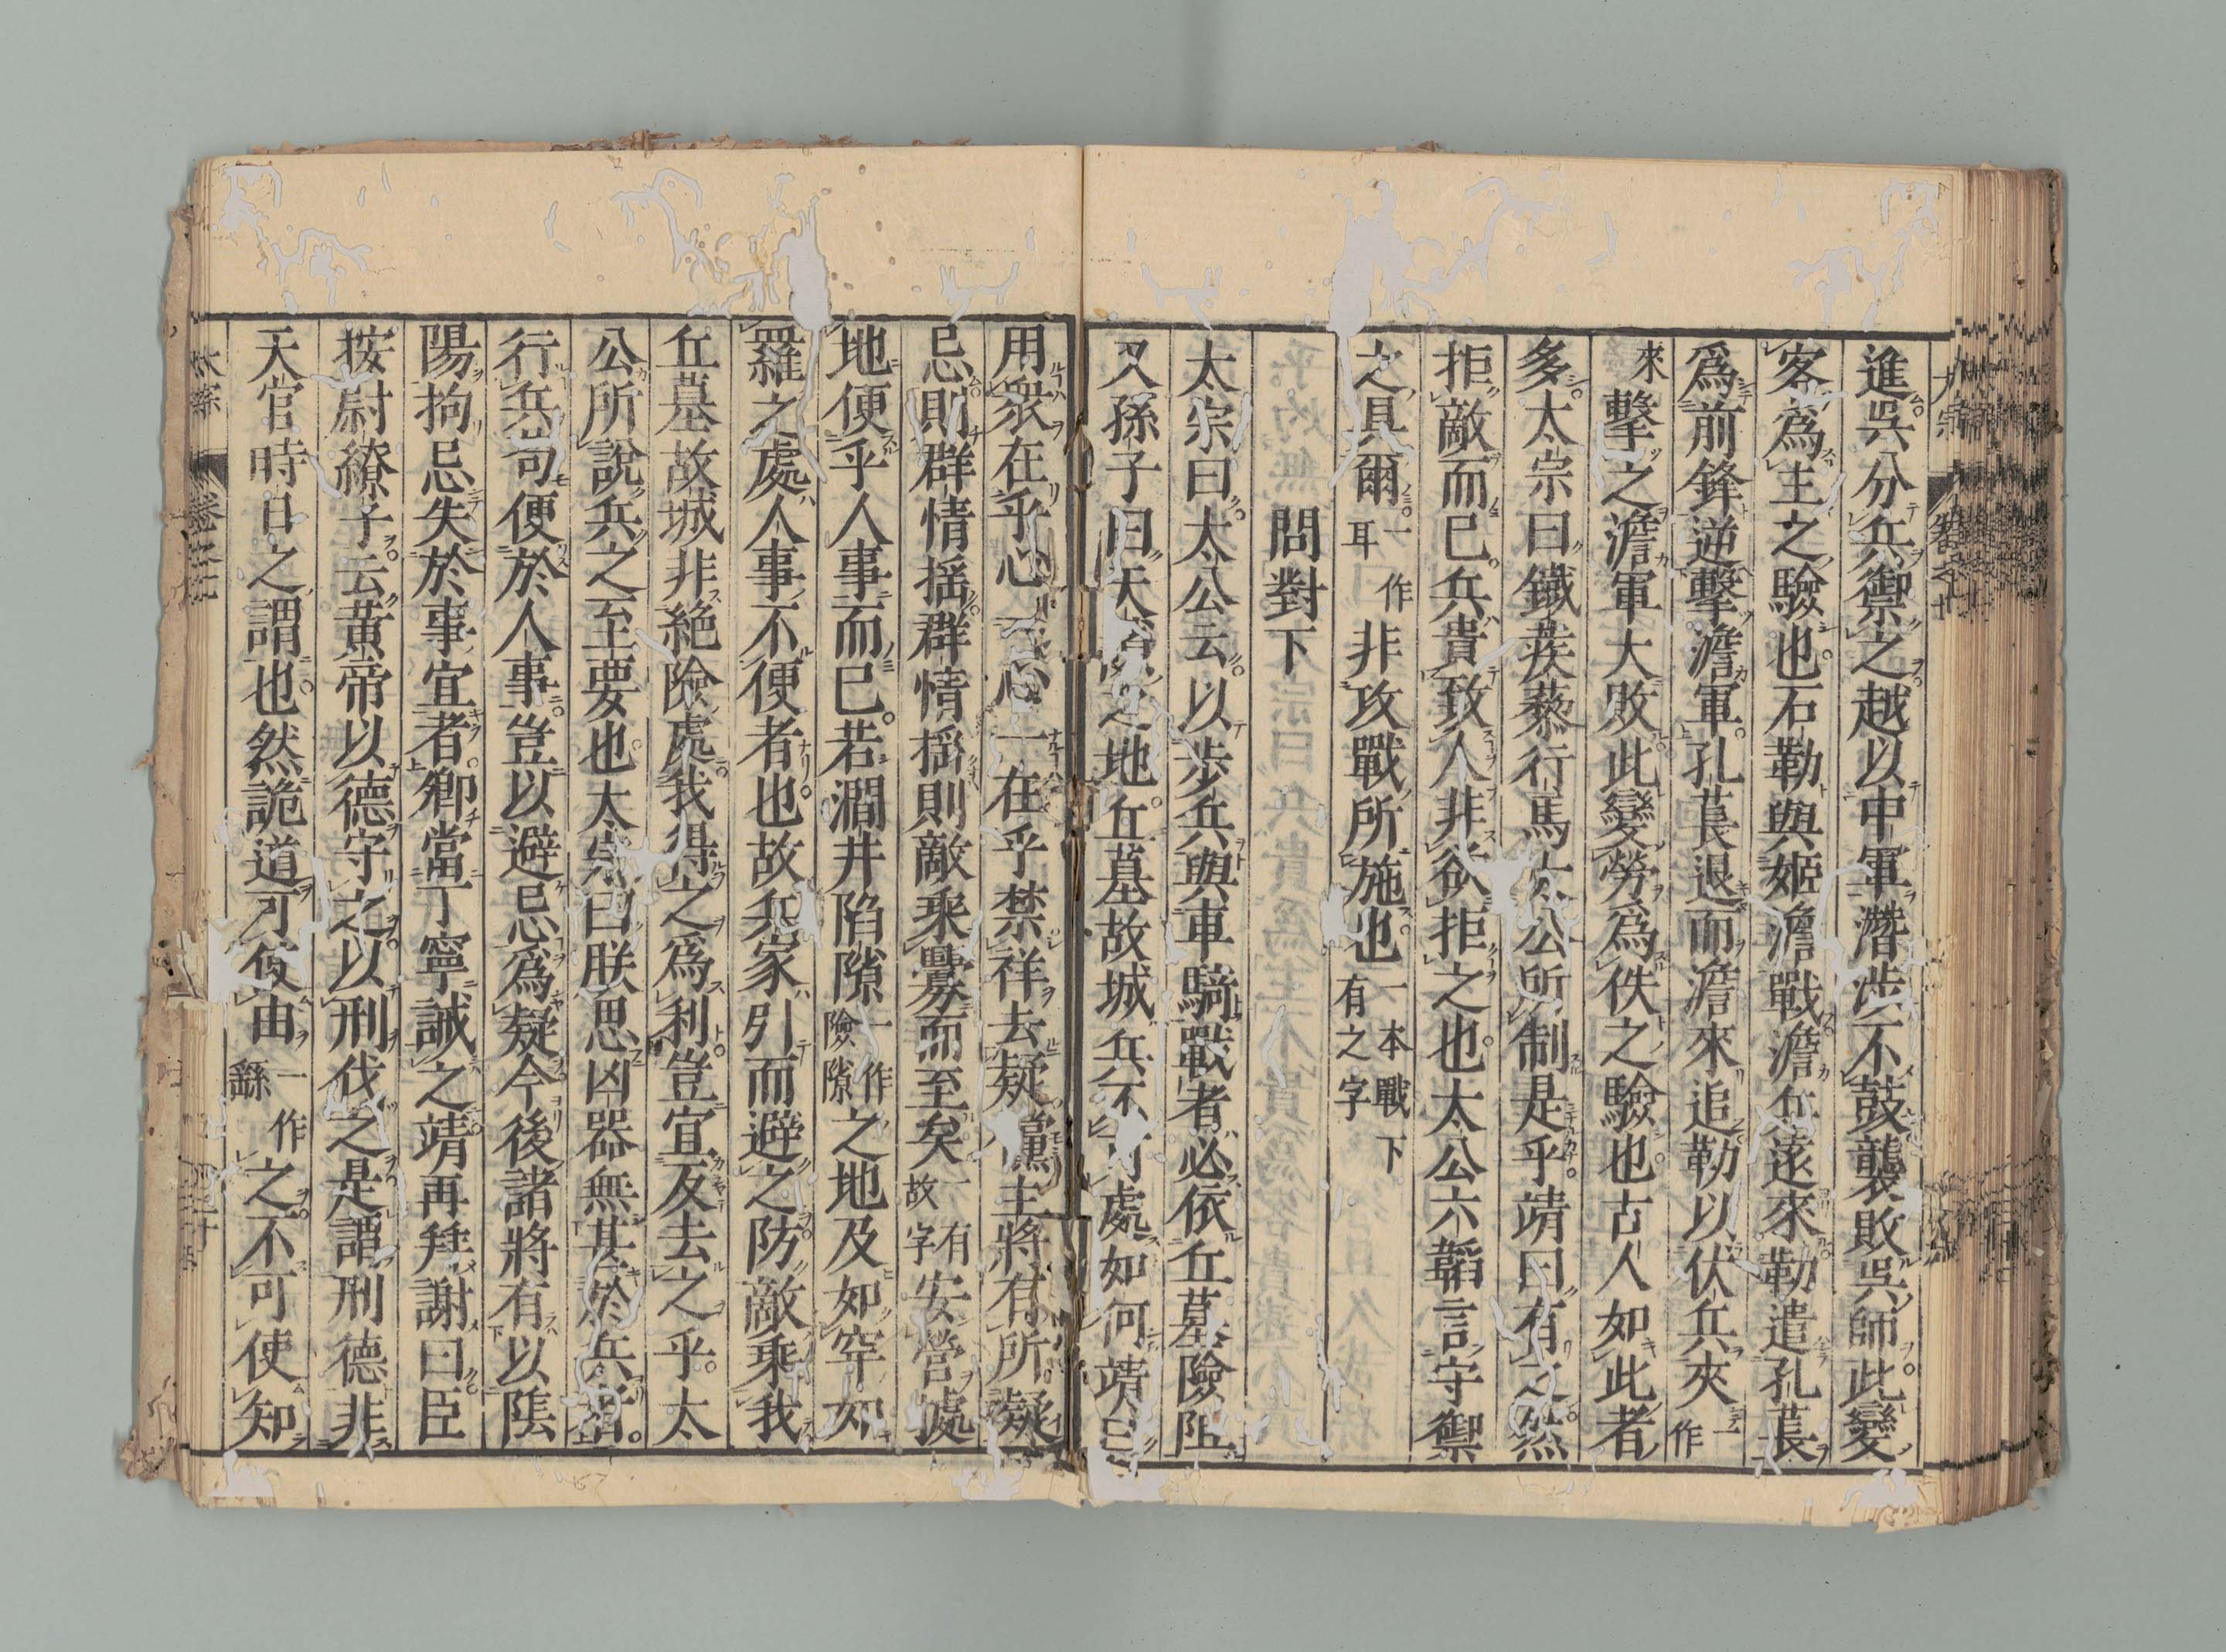 進吳分兵禦之越以中軍潛涉不鼓襲敗吳師此變
客為主之驗也石勒與姬澹戰澹兵遠來勒遣孔萇
為前鋒逆擊澹軍孔萇退而澹來追勒以伏兵夾一作
來擊之澹軍大敗此變勞為佚之驗也古人如此者
多太宗曰鐵蒺藜行馬太公所制是乎靖曰有之然
拒敵而已兵貴致人非欲拒之也太公六韜言守禦
之具爾一作耳非攻戰所施也一本戰下有之字
問對下
太宗曰太公云以步兵與車騎戰者必依丘墓險阻
又孫子曰天之地丘墓故城兵不可處如何靖曰
用眾在乎心一心一在乎禁祥去疑儻主將有所疑
忌則群情搖群情搖則敵乘釁而至矣一有故字安營據
地便乎人事而已若澗井陷隙一作險隙之地及如牢如
羅之處人事不便者也故兵家引而避之防敵乘我
丘墓故城非絕險處我得之為利豈宜反去之乎太
公所說兵之至要也太宗曰朕思凶器無甚於兵者
行兵苟便於人事豈以避忌為疑今後諸將有以陰
陽拘忌失於事宜者卿當丁寧誡之靖再拜謝曰臣
按尉繚子云黃帝以德守之以刑伐之是謂刑德非
天官時日之謂也然詭道可使由一作繇之不可使知